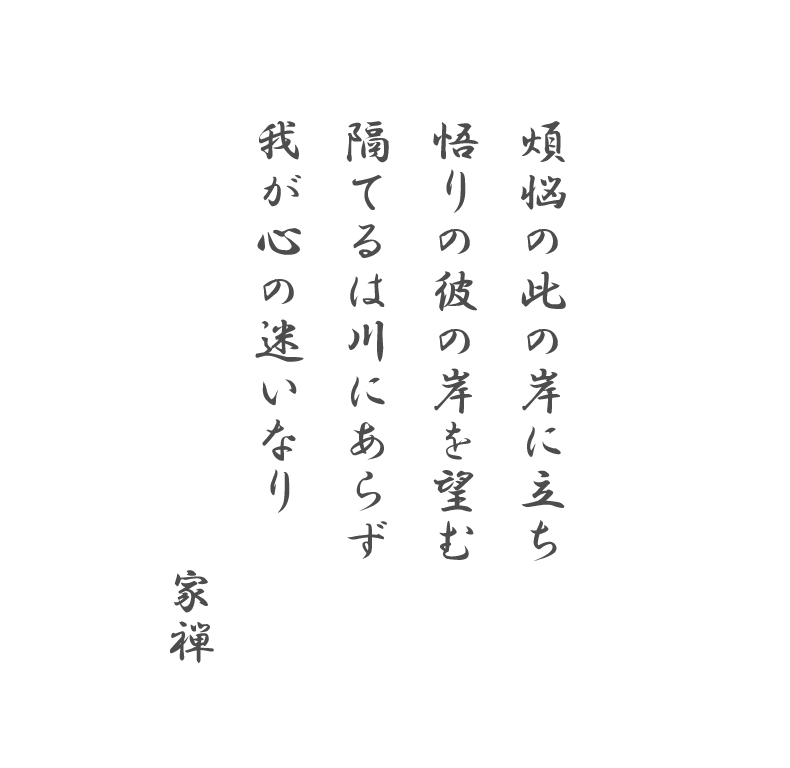 煩悩の此の岸に立ち
悟りの彼の岸を望む
隔てるは川にあらず
我が心の迷いなり
家禅